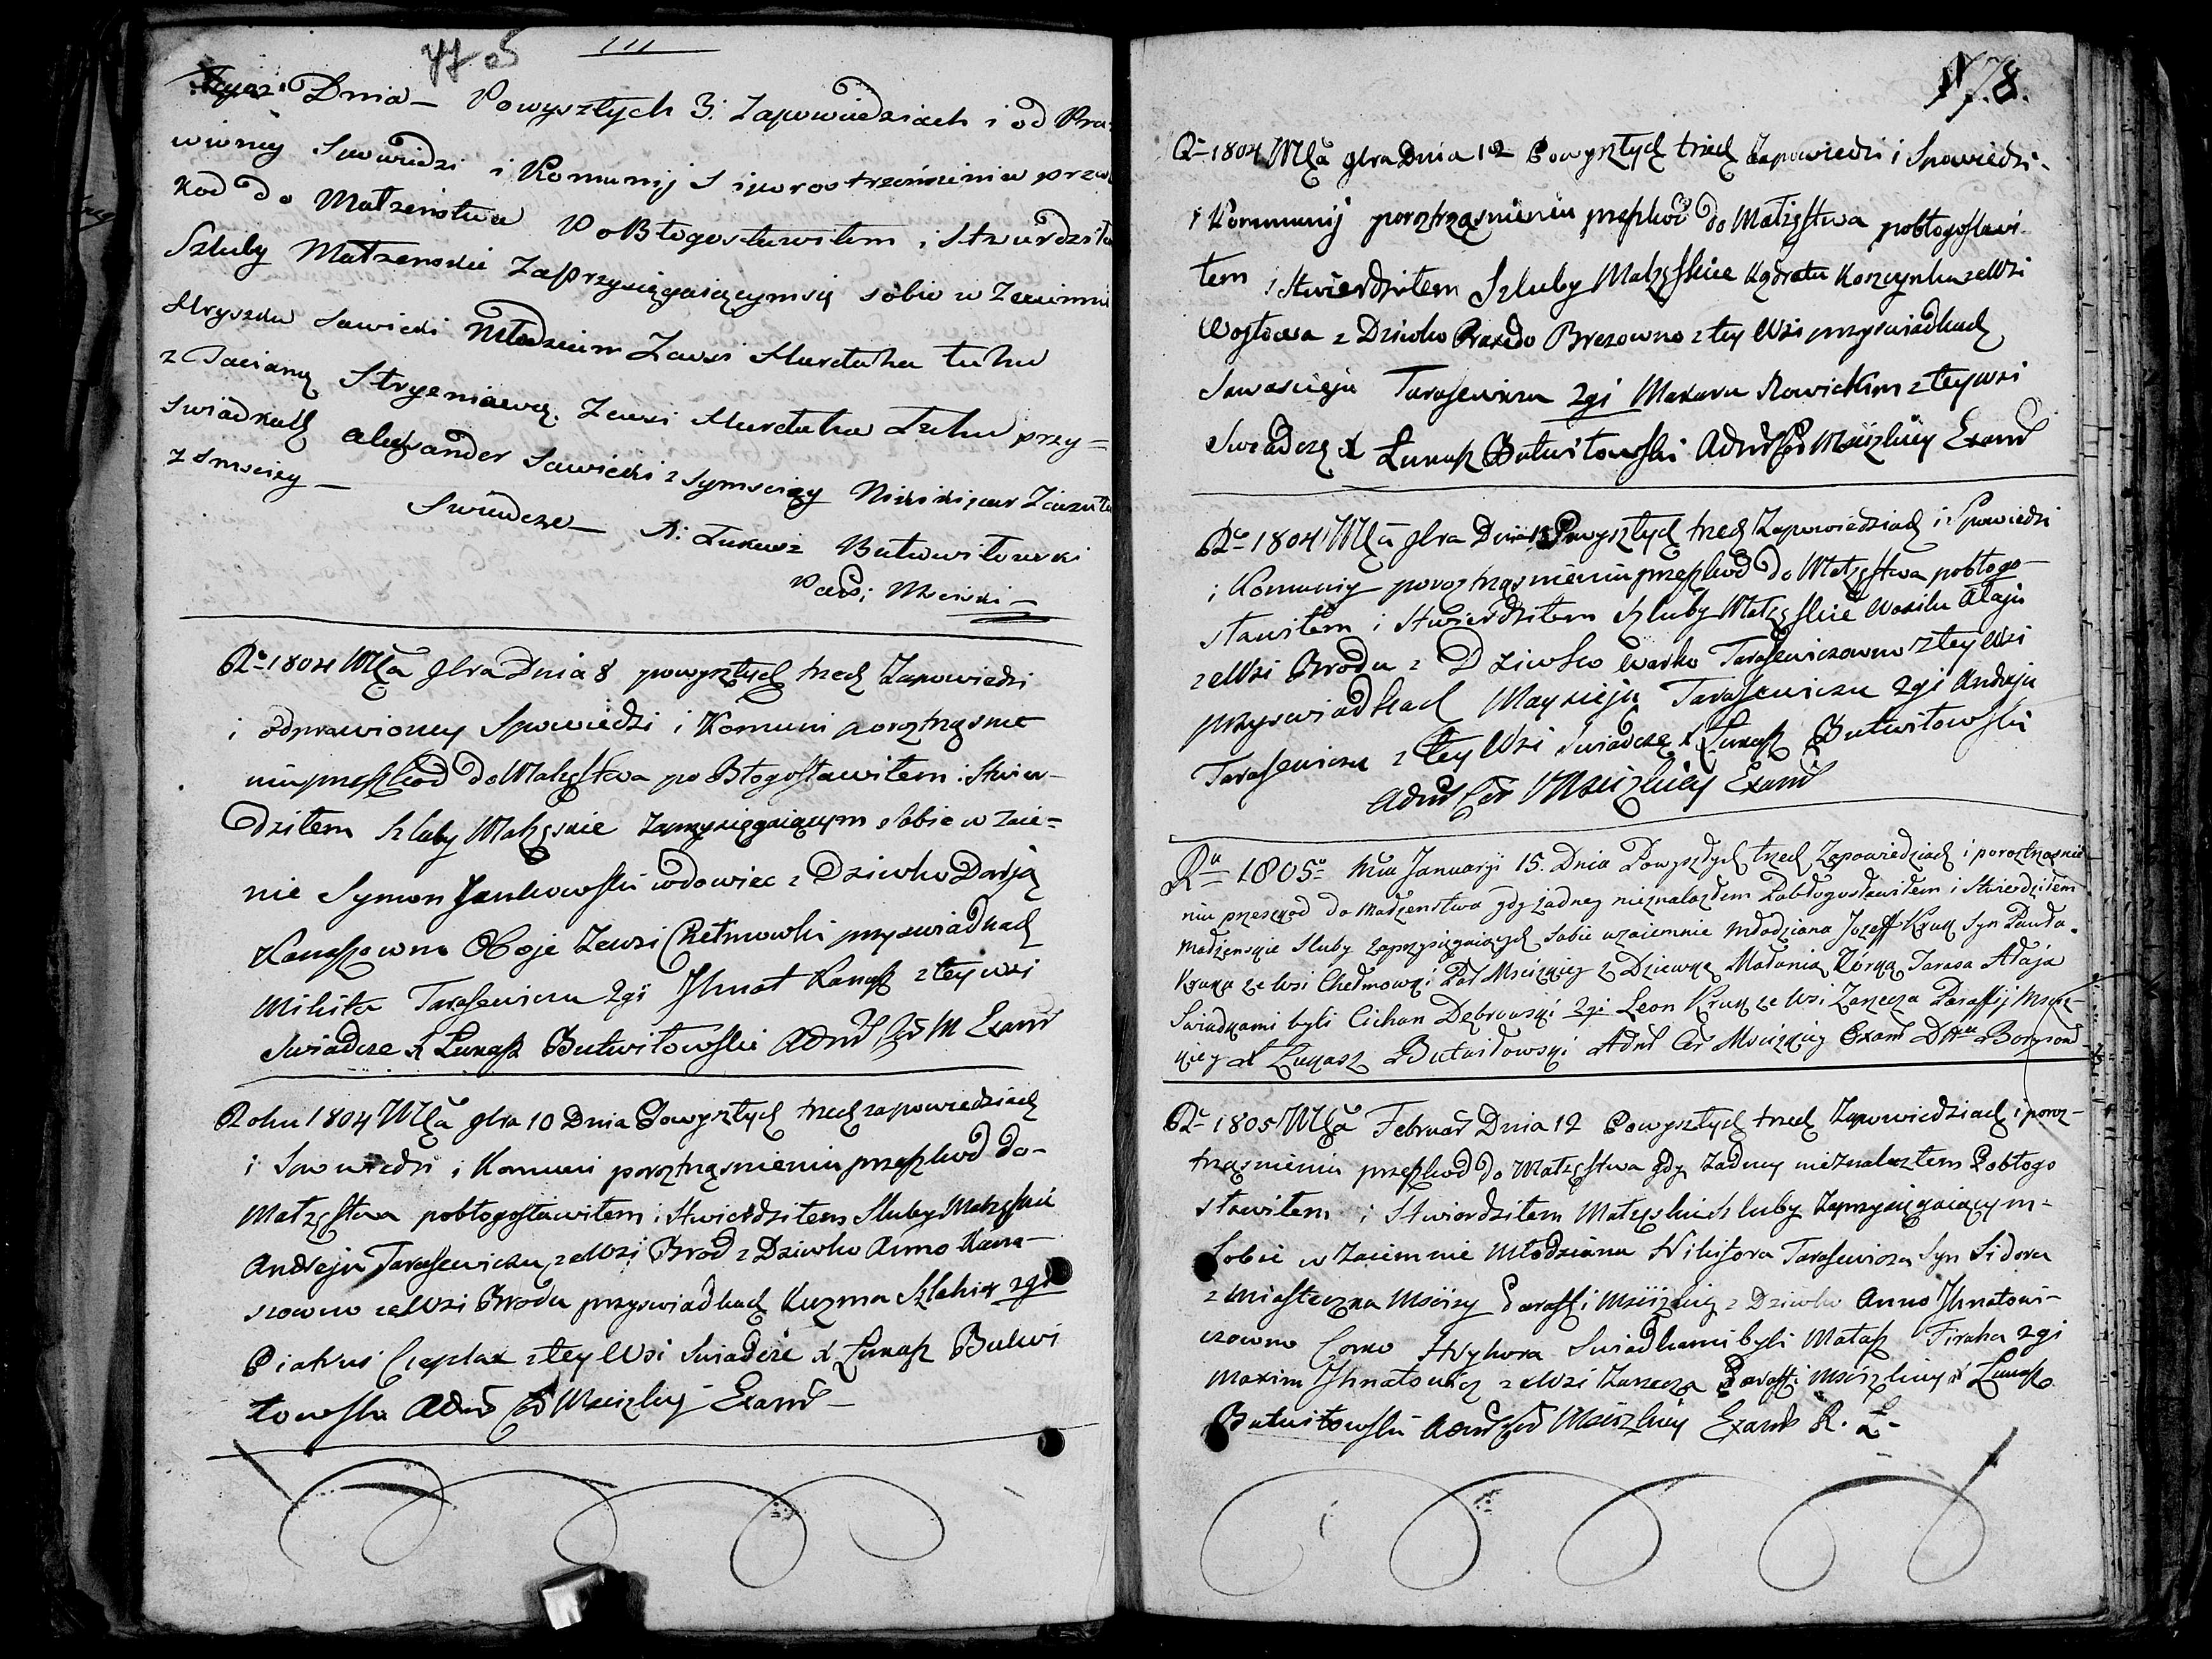 111
Dnia – Powyszłych 3: Zapowiedziach i od Pra-
wioney Spowiedzi i Komunij S i porostrzensieniu przes
kod do Małzenstwa PoBłogosławiłem i Stwierdziłe
Szluby Małzenskie Zaprzysięgaiącymsię sobie w Zaiemni
Hryszku Sawicki Młodzian Zewsi
z Tacianą Zewsi przy=
swiadkach alexander Sawicki z symscizy
z smscizy –
Swiadcze – X: Łukasz Butwiłowski
Paro: Msciski –
Rº 1804 Mca 9bra Dnia 8 powyszłych trzech Zapowiedzi
i odprawioney Spowiedzi i Komuni poroztrząsnie
niu przeszkod do Małzęstwa po Błogosławiłem i Stwier-
dziłem Szluby Małzęskie zaprzysięgaiącym sobie w zaie=
nie Symon Jankowski wdowiec z Dziewko Darją
Kanaszowno Oboje Zewsi Chełmowki przyswiadkach
Mikita Tarasewicza 2gi Ihnat Kanasz z tey wsi
Swiadcze X Łukasz Butwiłowski Adm Cer M Exam
Roku 1804 Mca 9bra 10 Dnia Powyszłych trzech zapowiedziach
i Spowiedzi i Komuni poroztrząsnieniu przeszkod do-
Małzęstwa pobłogosławiłem i Stwierdziłem Sluby Małzęskie
Andreju Tarasewiczu zeWsi Brod z Dziewko Anno Kana-
szowno zeWsi Brodu przyswiadkach Kuzma 2gi
Piatrus Cieplak z tey Wsi Swiadcze X Łukasz Butwi
łowski Adm Cer Mscizkiey Exam –
178.
Rº 1804 Mca 9bra Dnia 12 Powyszłych trzech Zapowiedzi i Spowiedzi-
i Kommunij poroztrząsnieniu przeszkod do Małzęstwa pobłogosławi-
łem i Stwierdziłem Szluby Małzęskie Kądratu zeWsi
z Dziewko Praxedo z tey Wsi przyswiadkach
Tarasewicza 2gi Makaru Nowickim z tey wsi
Swiadczę X Łukasz Butwiłowski Adm Cer Mscizkiey Exam
Rº 1804 Mca 9bra Dnia 13 Powyszłych trzech Zapowiedziach i Spowiedzi
i Komuniy poroztrząsnieniu przeszkod do Małzęstwa pobłogo-
sławiłem i Stwierdziłem Szluby Małzęskie Wasilu Ałaju
zeWsi Brodu z Dziewko Warko Tarasewiczowno z tey Wsi
przyswiadkach Tarasewiczu 2gi Andreju
Tarasewiczu z tey Wsi Swiadczę X Łukasz Butwiłowski
Adm Cer Mscizkiey Exam
Rº 1805º Mca Januaryi 15. Dnia Powyszłych trzech Zapowiedziach i poroztrząsnie
niu przeszkod do małżenstwa gdy żadney nieznalazłem Pobłogosławiłem i Stwierdziłem
małżenskie Sluby zaprzysięgaiących sobie wzaiemnie młodziana Jozeff Kruk Syn Pawła
Kruka ze wsi Chełmowki Par Mscizkiey z Dziewką Małanią Córką Tarasa Ałaja
Swiadkami byli Cichon Dębrowski 2gi Leon Kruk ze wsi Zarzecza Paraffij Msciz-
kiey X Łukasz Butwiłowski Adm Cer Mscizkiey Exam
Rº 1805 Mca Februar Dnia 12 Powyszłych trzech Zapowiedziach i poroz-
trząsnieniu przeszkod do Małzęstwa gdy Zadney nieznalazłem Pobłogo
sławiłem i Stwierdziłem Małzęskie Szluby Zaprzysięgaiącym-
Sobie w Zaiemnie Młodziana Nikifora Tarasewicza Syn Sidora
z Miasteczka Mscizy Paraffi Mscizkiey z Dziewko Anno Ihnatowi-
czowno Corko Hryhora Swiadkami byli Matasz Firaha 2gi
Maxim Ihnatowicz z Wsi Zarzecza Paraffi Mscizkiey X Łukasz
Butwiłowski Adm Cer Mscizkiey Exam